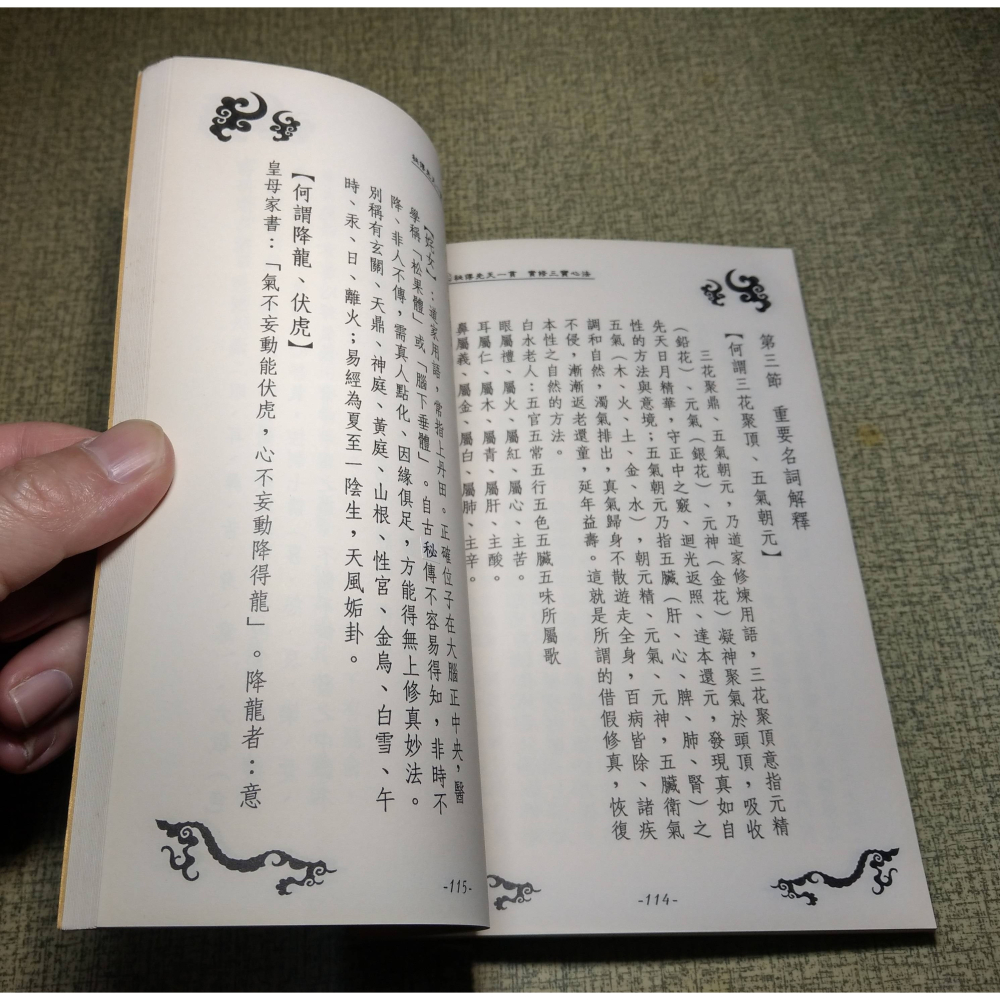 融傳先天一貫　實修三寶心法
第三節　重要名詞解釋
【何謂三花聚頂、五氣朝元】
三花聚鼎、五氣朝元，乃道家修煉用語，三花聚頂意指元精
（鉛花）、元氣（銀花）、元神（金花）凝神聚氣於頭頂，吸收
先天日月精華，守正中之竅、迴光返照、達本還元，發現真如自
性的方法與意境；五氣朝元乃指五臟（肝、心、脾、肺、腎）之
五氣（木、火、土、金、水），朝元精、元氣、元神，五臟衛氣
調和自然，濁氣排出，真氣歸身不散遊走全身，百病皆除、諸疾
不侵，漸漸返老還童，延年益壽。這就是所謂的借假修真，恢復
本性之自然的方法。
白水老人：五官五常五行五色五臟五味所屬歌
眼屬禮、屬火、屬紅、屬心、主苦。
耳屬仁、屬木、屬青、屬肝、主酸。
鼻屬義、屬金、屬白、屬肺、主辛。
-114-
【姹女】：道家用語，常指上丹田。正確位子在大腦正中央，醫
學稱「松果體」或「腦下垂體」。自古秘傳不容易得知，非時不
降、非人不傳，需真人點化、因緣俱足，方能得無上修真妙法。
別稱有玄關、天鼎、神庭、黃庭、山根、性宮、金烏、白雪、午
時、汞、日、離火；易經為夏至一陰生，天風姤卦。
【何謂降龍、伏虎】
皇母家書：「氣不妄動能伏虎，心不妄動降得龍」。降龍者：意
-115-